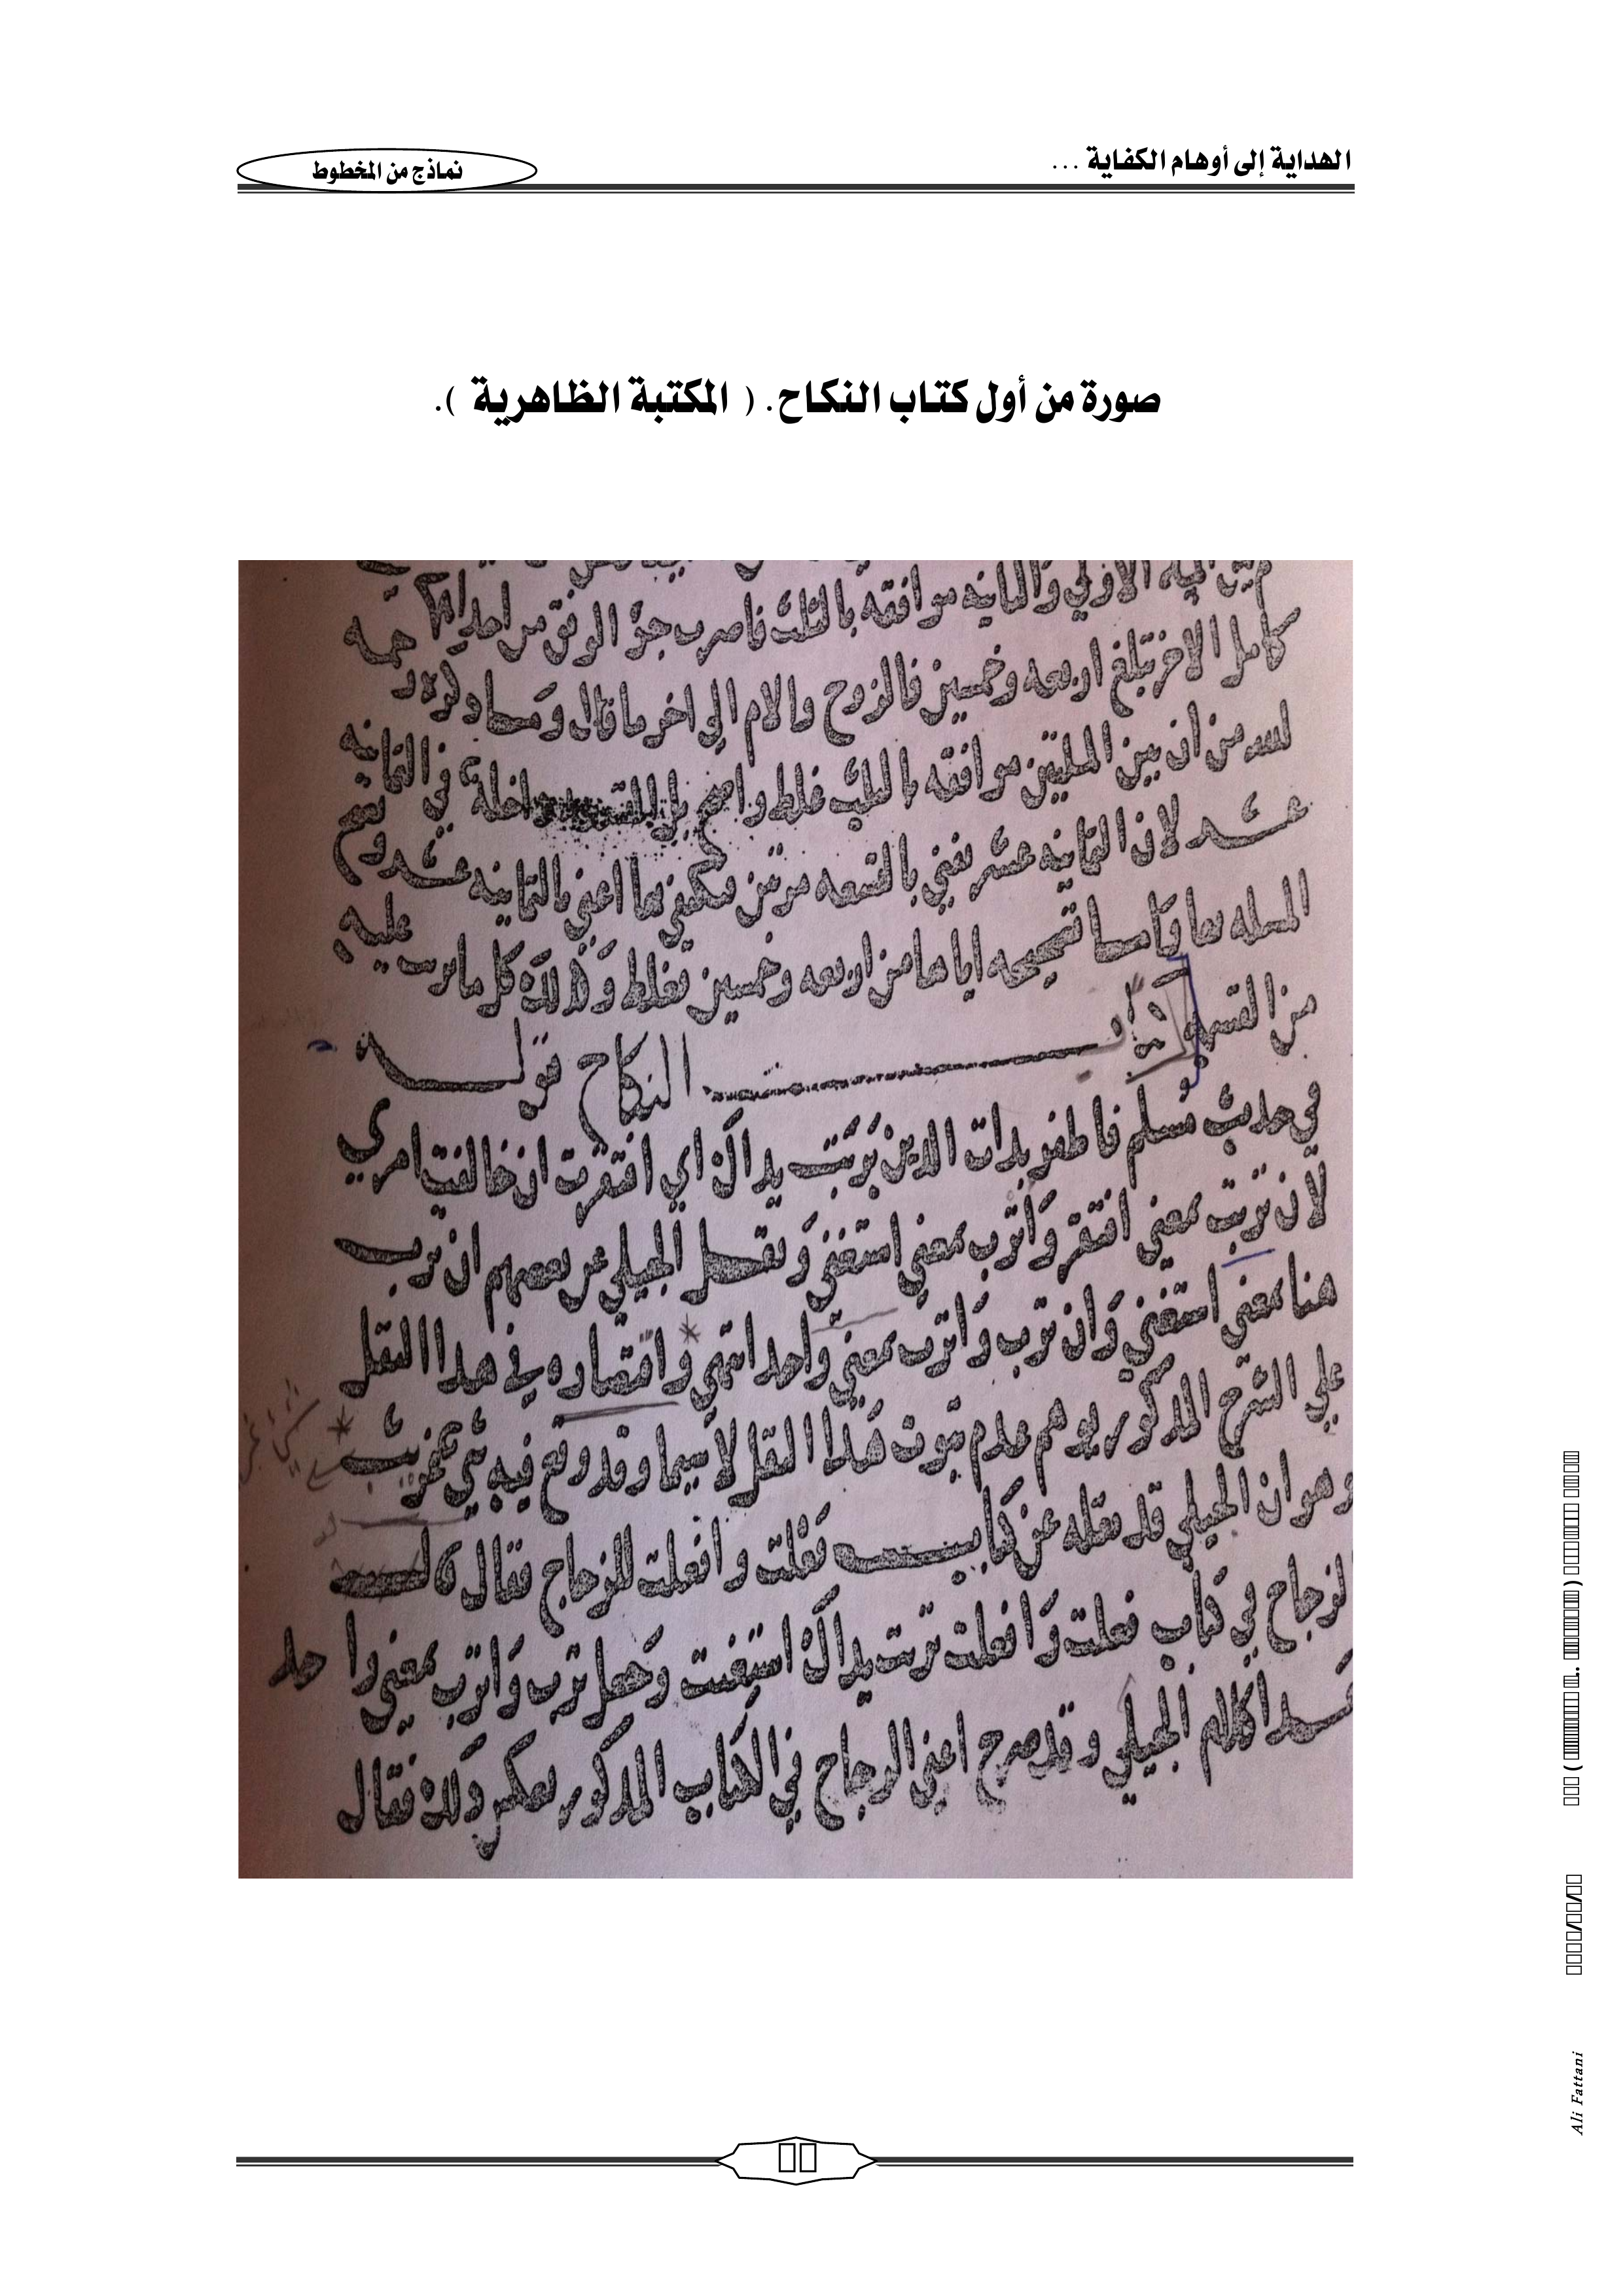 الهداية إلى أوهام الكفاية ...
نماذج من المخطوط
صورة من أول كتاب النكاح. ( المكتبة الظاهرية ).
الاولي والثانيه موافقه بالثلث فاضرب جزؤ الوفق من احداهما
كامل الاخر تبلغ اربعه وخمسين فالزوج والام الي اخر ما قال وما ذكره رحمه
الله من ان بين المسلتين موافقه بالثلث غلط واضح بل التسعه داخلة في الثمانيه
عشر لان الثمانيه عشر تفني بالتسعه مرتين فيكتفي بها اعني بالثمانيه عشر وتصح
المسله منها واما تصحيحه اياها من اربعه وخمسين فغلط وكذلك كل ما رتب عليه
من القسمه كتاب النكاح قوله
في حديث مسلم فاظفر بذات الدين تربت يداك اي افتقرت ان خالفت امري
لان تربت بمعني افتقر واترب بمعني استغني ونقل الجيلي عن بعضهم ان ترب
هنا بمعني استغني وان ترب واترب بمعني واحد انتهي واقتصاره في هذا النقل
علي الشرح المذكور يوهم عدم ثبوت هذا النقل لا سيما وقد وقع فيه شي غريب
وهو ان الجيلي قد نقله عن كتاب فعلت وافعلت للزجاج فقال قال
الزجاج في كتاب فعلت وافعلت تربت يداك استغنت وجعل ترب واترب بمعني واحد
هذا كلام الجيلي وقد صرح اعني الزجاج في الكتاب المذكور بعكس ذلك فقال
Ali Fattani